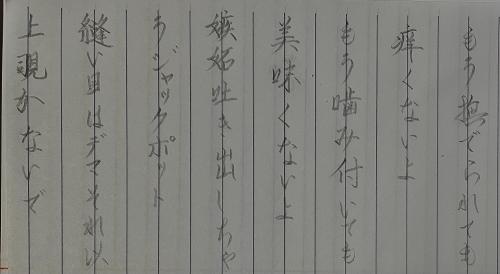 もう撫でられても
痒くないよ
もう噛み付いても
美味くないよ
嫉妬吐き出しちゃ
うジャックポット
縫い目はデマそれ以
上覗かないで